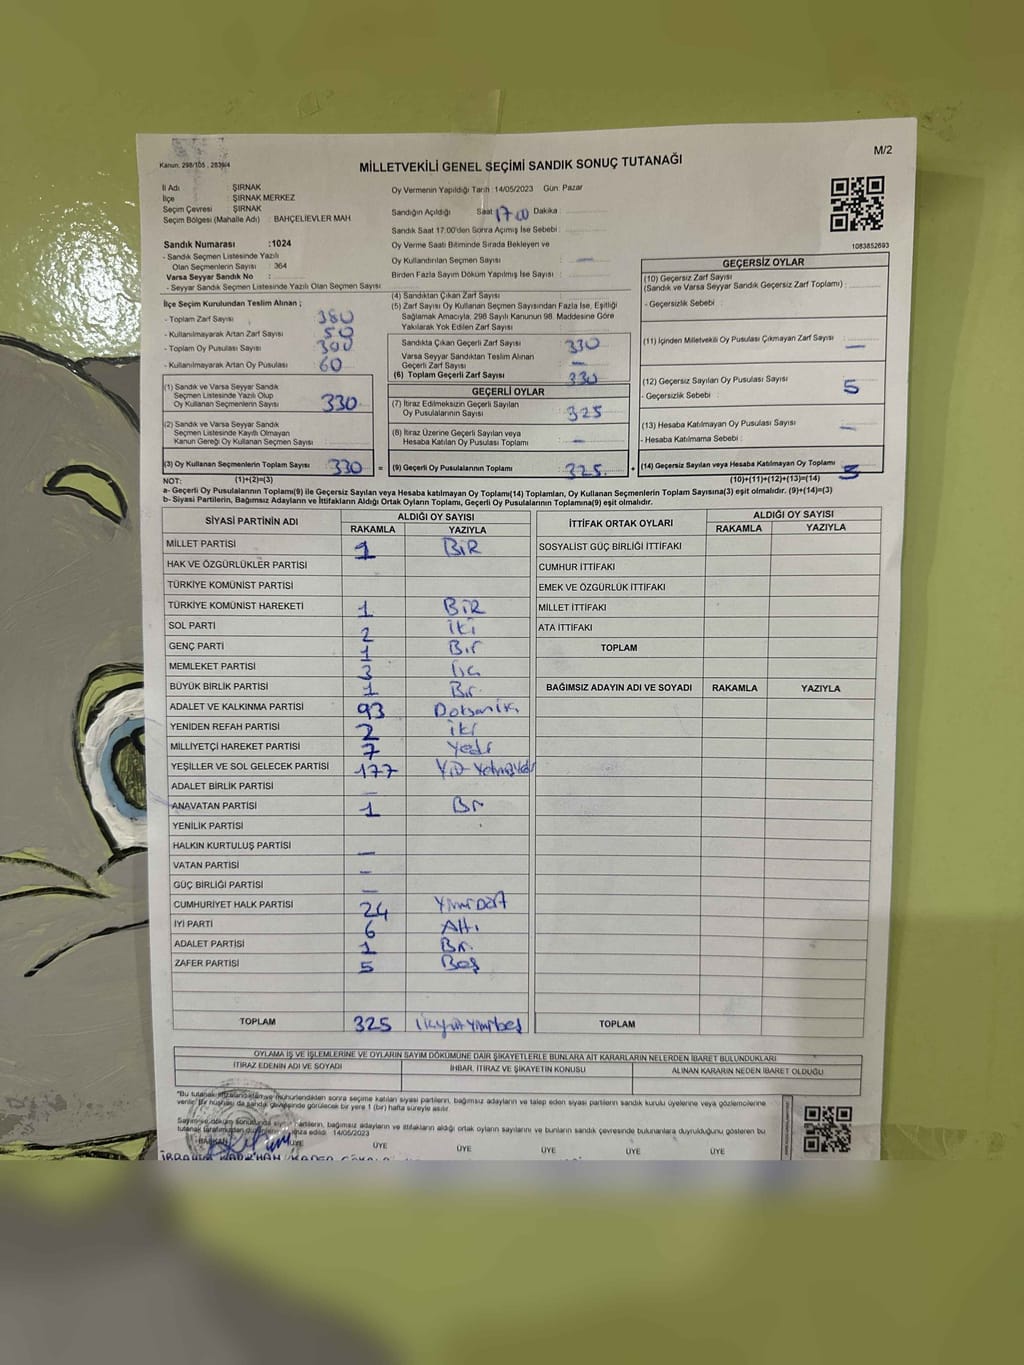 Kanun: 298/105, 2839/4
MİLLETVEKİLİ GENEL SEÇİMİ SANDIK SONUÇ TUTANAĞI
M/2
İl Adı : ŞIRNAK
İlçe : ŞIRNAK MERKEZ
Seçim Çevresi : ŞIRNAK
Seçim Bölgesi (Mahalle Adı) : BAHÇELİEVLER MAH
Sandık Numarası :1024
- Sandık Seçmen Listesinde Yazılı
Olan Seçmenlerin Sayısı : 364
Varsa Seyyar Sandık No :
- Seyyar Sandık Seçmen Listesinde Yazılı Olan Seçmen Sayısı
Oy Vermenin Yapıldığı Tarih :14/05/2023 Gün: Pazar
Sandığın Açıldığı Saat 17 00 Dakika :
Sandık Saat 17:00'den Sonra Açımış İse Sebebi :
Oy Verme Saati Bitiminde Sırada Bekleyen ve
Oy Kullandırılan Seçmen Sayısı : —
Birden Fazla Sayım Döküm Yapılmış İse Sayısı :
1083852693
İlçe Seçim Kurulundan Teslim Alınan ;
- Toplam Zarf Sayısı 380
- Kullanılmayarak Artan Zarf Sayısı 50
- Toplam Oy Pusulası Sayısı
- Kullanılmayarak Artan Oy Pusulası 60
(1) Sandık ve Varsa Seyyar Sandık
Seçmen Listesinde Yazılı Olup
Oy Kullanan Seçmenlerin Sayısı 330
(2) Sandık ve Varsa Seyyar Sandık
Seçmen Listesinde Kayıtlı Olmayan
Kanun Gereği Oy Kullanan Seçmen Sayısı
(3) Oy Kullanan Seçmenlerin Toplam Sayısı 330 =
(1)+(2)=(3)
(4) Sandıktan Çıkan Zarf Sayısı
(5) Zarf Sayısı Oy Kullanan Seçmen Sayısından Fazla İse, Eşitliği
Sağlamak Amacıyla, 298 Sayılı Kanunun 98. Maddesine Göre
Yakılarak Yok Edilen Zarf Sayısı :
Sandıkta Çıkan Geçerli Zarf Sayısı 330
Varsa Seyyar Sandıktan Teslim Alınan
Geçerli Zarf Sayısı —
(6) Toplam Geçerli Zarf Sayısı 330
GEÇERLİ OYLAR
(7) İtiraz Edilmeksizin Geçerli Sayılan
Oy Pusulalarının Sayısı 325
(8) İtiraz Üzerine Geçerli Sayılan veya
Hesaba Katılan Oy Pusulası Toplamı —
(9) Geçerli Oy Pusulalarının Toplamı 325 +
GEÇERSİZ OYLAR
(10) Geçersiz Zarf Sayısı
(Sandık ve Varsa Seyyar Sandık Geçersiz Zarf Toplamı) :
- Geçersizlik Sebebi :
(11) İçinden Milletvekili Oy Pusulası Çıkmayan Zarf Sayısı —
(12) Geçersiz Sayılan Oy Pusulası Sayısı 5
- Geçersizlik Sebebi :
(13) Hesaba Katılmayan Oy Pusulası Sayısı —
- Hesaba Katılmama Sebebi :
(14) Geçersiz Sayılan veya Hesaba Katılmayan Oy Toplamı 5
(10)+(11)+(12)+(13)=(14)
NOT:
a- Geçerli Oy Pusulalarının Toplamı(9) ile Geçersiz Sayılan veya Hesaba katılmayan Oy Toplamı(14) Toplamları, Oy Kullanan Seçmenlerin Toplam Sayısına(3) eşit olmalıdır. (9)+(14)=(3)
b- Siyasi Partilerin, Bağımsız Adayların ve İttifakların Aldığı Ortak Oyların Toplamı, Geçerli Oy Pusulalarının Toplamına(9) eşit olmalıdır.
SİYASİ PARTİNİN ADI ALDIĞI OY SAYISI
RAKAMLA YAZIYLA
MİLLET PARTİSİ 1 BİR
HAK VE ÖZGÜRLÜKLER PARTİSİ
TÜRKİYE KOMÜNİST PARTİSİ
TÜRKİYE KOMÜNİST HAREKETİ 1 BİR
SOL PARTİ 2 İki
GENÇ PARTİ 1 Bir
MEMLEKET PARTİSİ 3 Üç
BÜYÜK BİRLİK PARTİSİ 1 Bir
ADALET VE KALKINMA PARTİSİ 93
YENİDEN REFAH PARTİSİ 2 iki
MİLLİYETÇİ HAREKET PARTİSİ 7 Yedi
YEŞİLLER VE SOL GELECEK PARTİSİ 177
ADALET BİRLİK PARTİSİ —
ANAVATAN PARTİSİ 1 Bir
YENİLİK PARTİSİ
HALKIN KURTULUŞ PARTİSİ —
VATAN PARTİSİ —
GÜÇ BİRLİĞİ PARTİSİ —
CUMHURİYET HALK PARTİSİ 24
İYİ PARTİ 6 Altı
ADALET PARTİSİ 1 Bir
ZAFER PARTİSİ 5 Beş
TOPLAM 325
İTTİFAK ORTAK OYLARI ALDIĞI OY SAYISI
RAKAMLA YAZIYLA
SOSYALİST GÜÇ BİRLİĞİ İTTİFAKI
CUMHUR İTTİFAKI
EMEK VE ÖZGÜRLÜK İTTİFAKI
MİLLET İTTİFAKI
ATA İTTİFAKI
TOPLAM
BAĞIMSIZ ADAYIN ADI VE SOYADI RAKAMLA YAZIYLA
TOPLAM
OYLAMA İŞ VE İŞLEMLERİNE VE OYLARIN SAYIM DÖKÜMÜNE DAİR ŞİKAYETLERLE BUNLARA AİT KARARLARIN NELERDEN İBARET BULUNDUKLARI
İTİRAZ EDENİN ADI VE SOYADI İHBAR, İTİRAZ VE ŞİKAYETİN KONUSU ALINAN KARARIN NEDEN İBARET OLDUĞU
"Bu tutanak imzalandıktan ve mühürlendikten sonra seçime katılan siyasi partilerin, bağımsız adayların ve talep eden siyasi partilerin sandık kurulu üyelerine veya gözlemcilerine
verilir. Bir nüshası da sandık çevresinde görülecek bir yere 1 (bir) hafta süreyle asılır.
Sayım ve döküm sonucunda siyasi partilerin, bağımsız adayların ve ittifakların aldığı ortak oyların sayılarını ve bunların sandık çevresinde bulunanlara duyrulduğunu gösteren bu
tutanak tarafımızdan düzenlenerek imza edildi. 14/05/2023
BAŞKAN ÜYE ÜYE ÜYE ÜYE ÜYE ÜYE